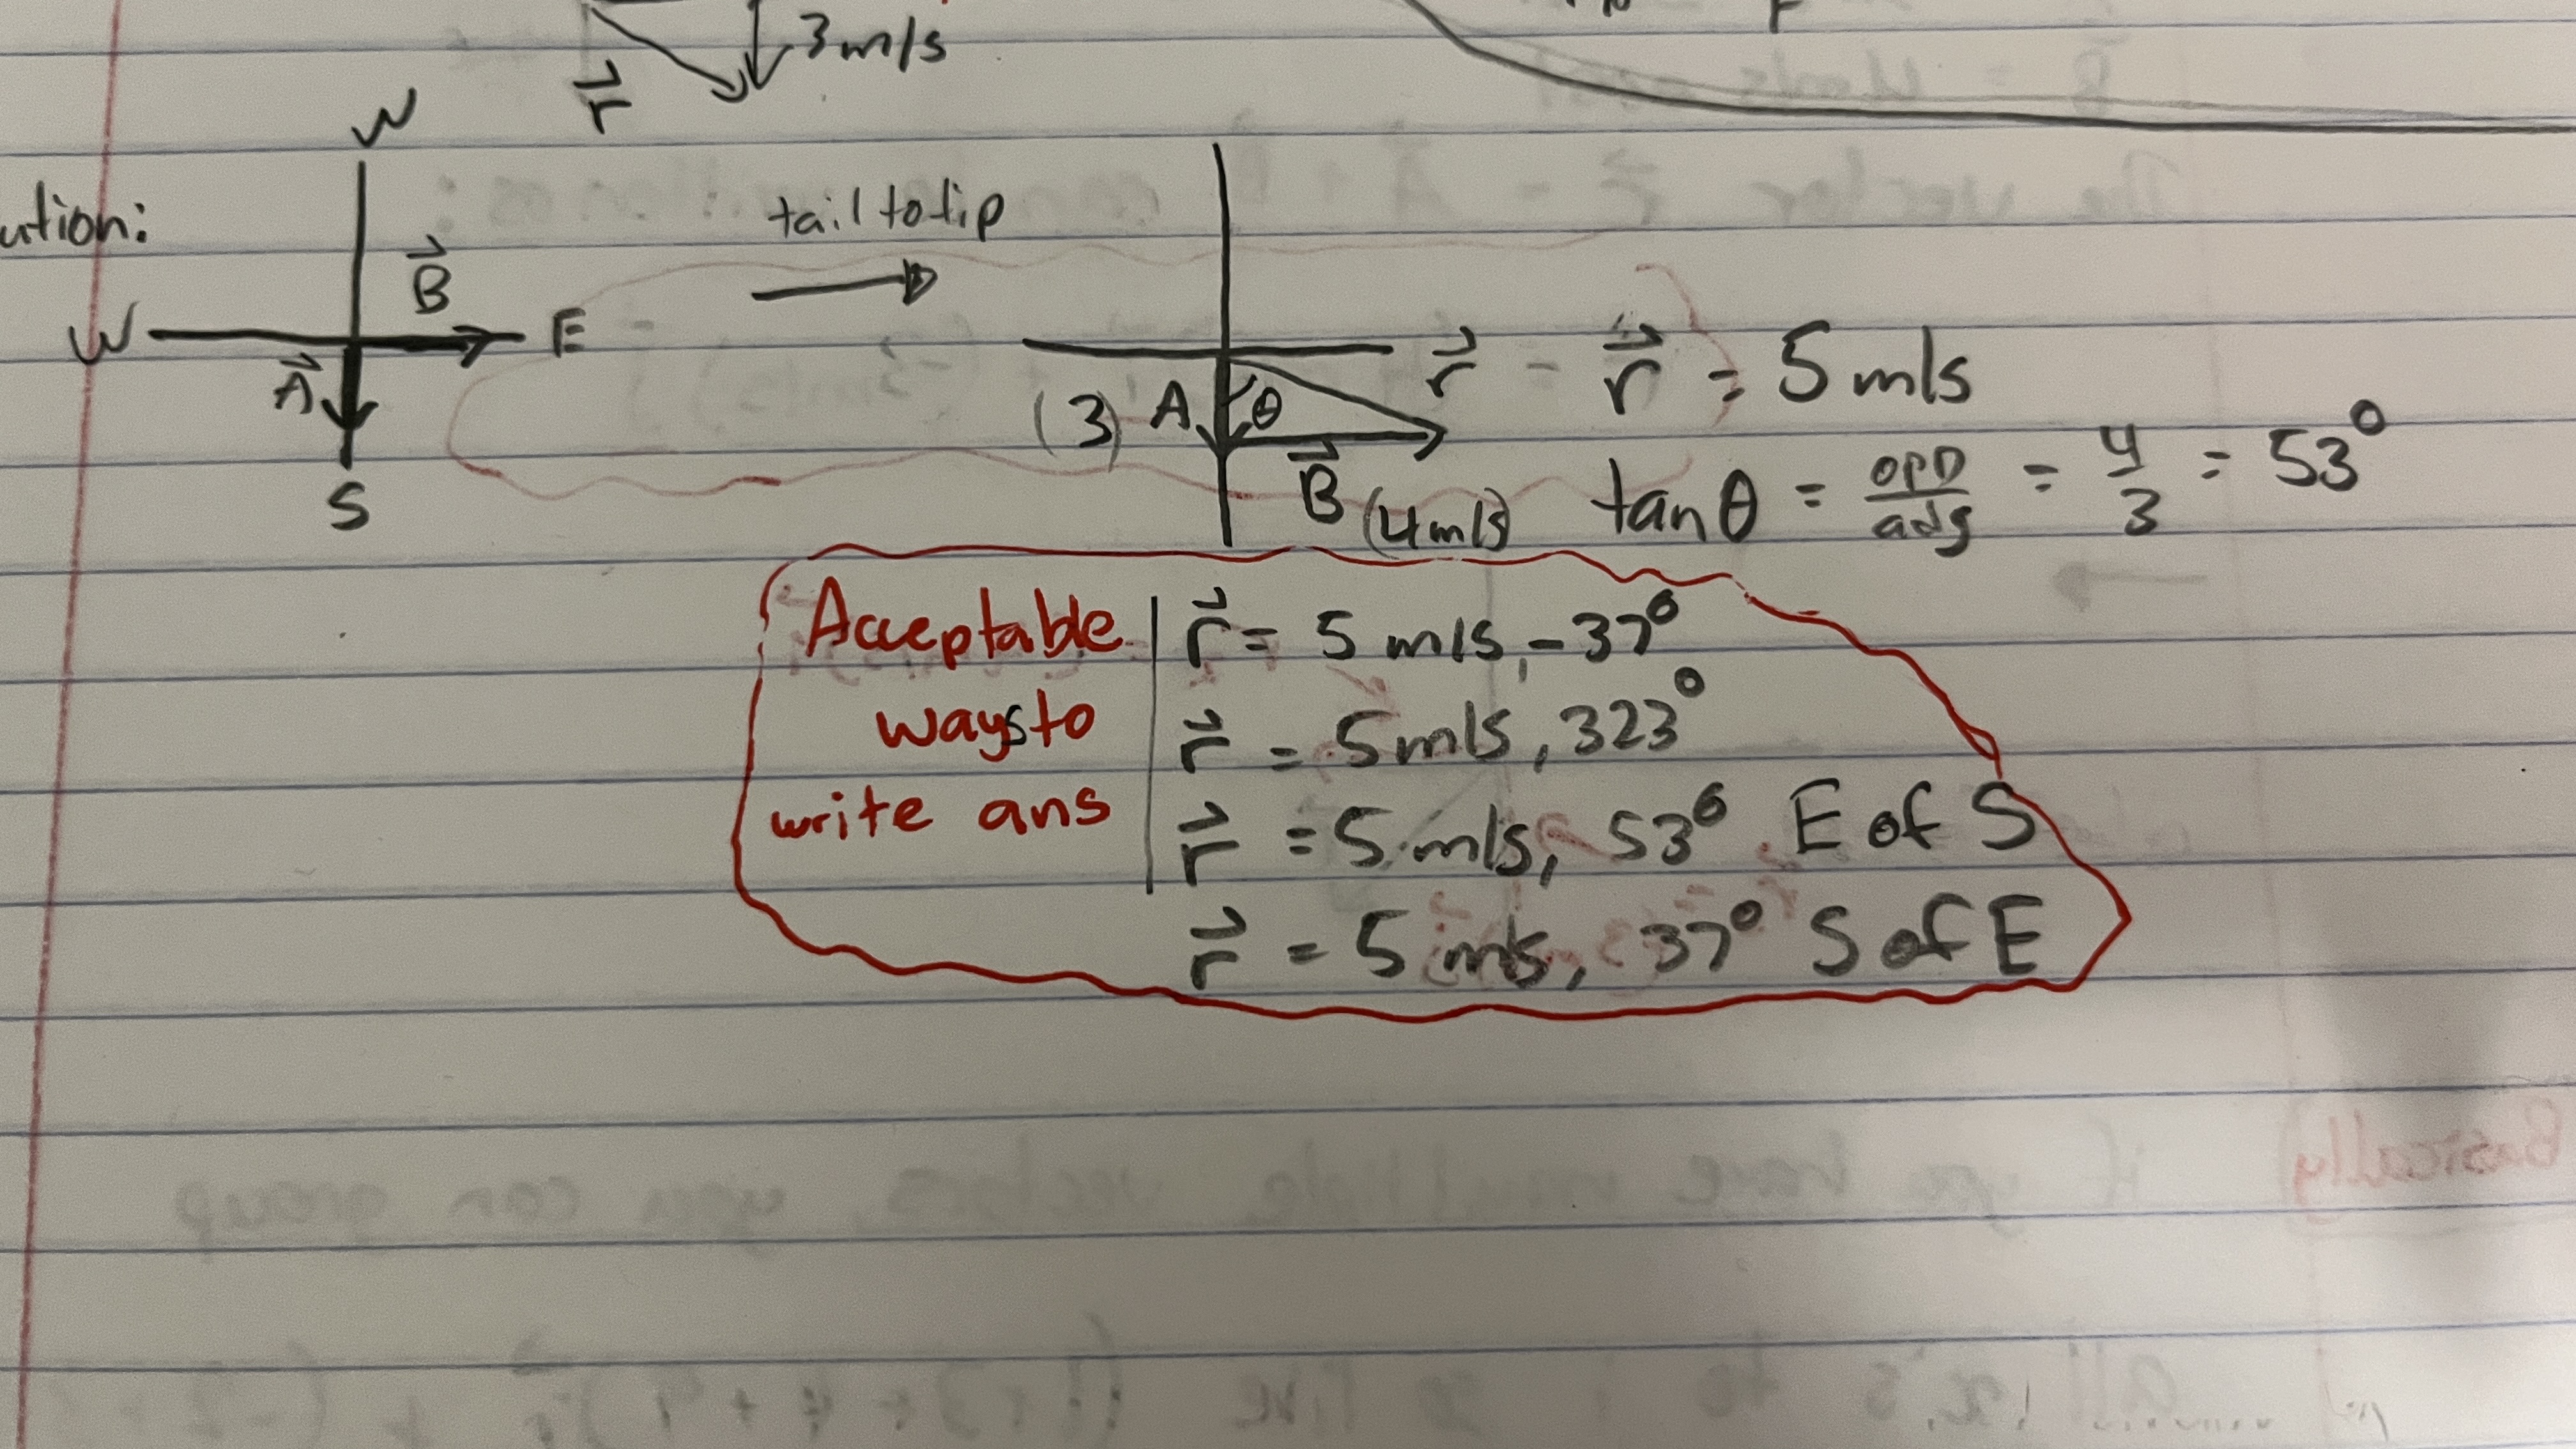 3 m/s
r
N
ution:
tail to tip
B
W
E
A
r
r = 5 m/s
(3) A θ
B (4 m/s)
tan θ = opp/adj = 4/3 = 53°
S
Acceptable ways to write ans
r = 5 m/s, -37°
r = 5 m/s, 323°
r = 5 m/s, 53° E of S
r = 5 m/s, 37° S of E